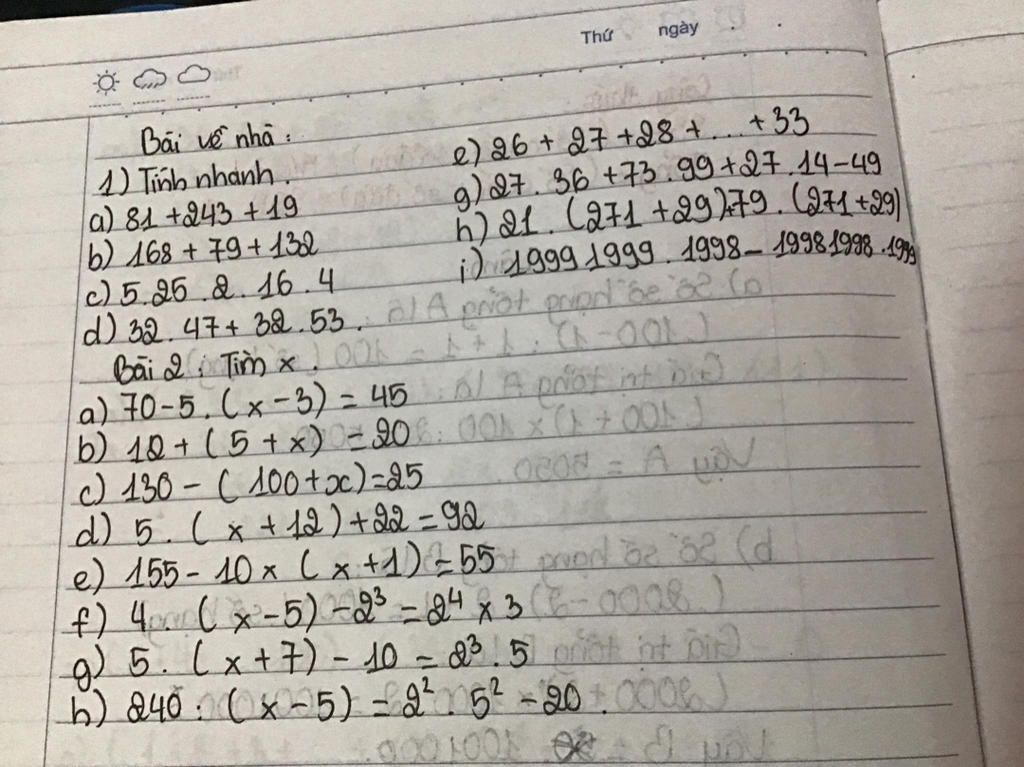 Thứ ngày
Bài về nhà:
1) Tính nhanh.
a) 81 + 243 + 19
b) 168 + 79 + 132
c) 5.25.2.16.4
d) 32.47 + 32.53.
e) 26 + 27 + 28 + ... + 33
g) 27.36 + 73.99 + 27.14 - 49
h) 21.(271 + 29) + 79.(271 + 29)
i) 19991999.1998 - 19981998.1999
Bài 2: Tìm x.
a) 70 - 5.(x - 3) = 45
b) 12 + (5 + x) = 20
c) 130 - (100 + x) = 25
d) 5.(x + 12) + 22 = 92
e) 155 - 10 x (x + 1) = 55
f) 4.(x - 5) - 2³ = 2⁴ x 3
g) 5.(x + 7) - 10 = 2³.5
h) 240 : (x - 5) = 2².5² - 20.